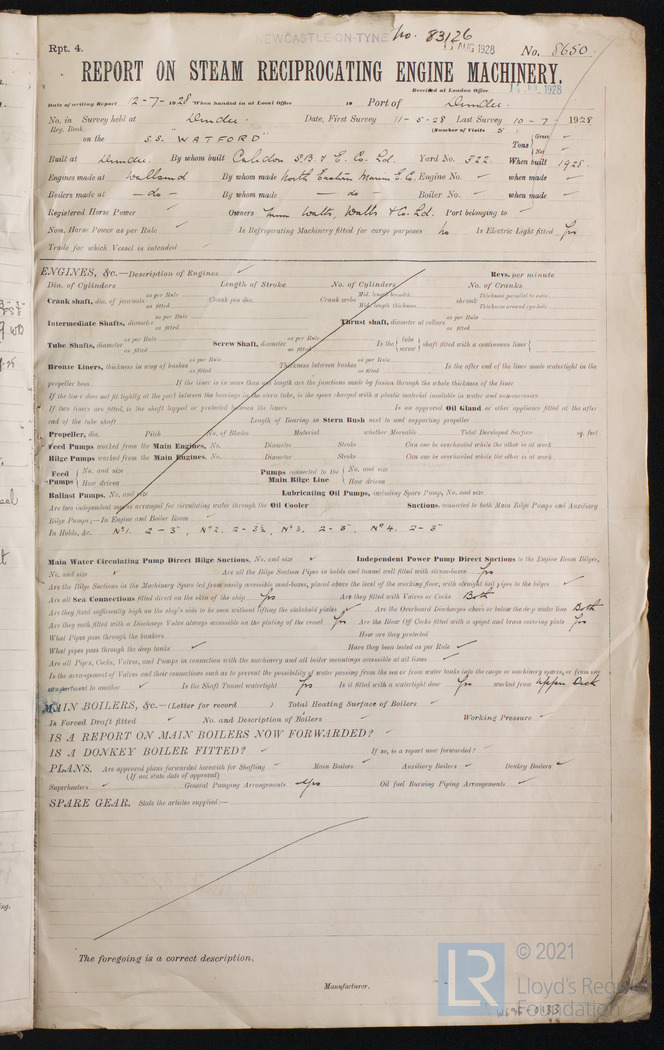 NEWCASTLE-ON-TYNE No. 83126
Rpt. 4. 13 AUG 1928 No. 8650.
REPORT ON STEAM RECIPROCATING ENGINE MACHINERY.
Received at London Office 1928
Date of writing Report 12-7-1928 When handed in at Local Office 19 Port of Dundee.
No. in Survey held at Dundee. Date, First Survey 11-5-28 Last Survey 10-7-1928
Reg. Book. (Number of Visits 5)
on the S.S. "WATFORD" Tons { Gross Net
Built at Dundee. By whom built Caledon S.B. & E. Co. Ld. Yard No. 322. When built 1928.
Engines made at Wallsend By whom made North Eastern Marine E. Co. Engine No. when made
Boilers made at - do - By whom made - do - Boiler No. when made
Registered Horse Power Owners Watts, Watts & Co. Ld. Port belonging to
Nom. Horse Power as per Rule Is Refrigerating Machinery fitted for cargo purposes No Is Electric Light fitted Yes
Trade for which Vessel is intended
ENGINES, &c.—Description of Engines Revs. per minute
Dia. of Cylinders Length of Stroke No. of Cylinders No. of Cranks
Crank shaft, dia. of journals as per Rule as fitted Crank pin dia. Crank webs Mid. length breadth Mid. length thickness shrunk Thickness parallel to axis Thickness around eye-hole
Intermediate Shafts, diameter as per Rule as fitted Thrust shaft, diameter at collars as per Rule as fitted
Tube Shafts, diameter as per Rule as fitted Screw Shaft, diameter as per Rule as fitted Is the { tube screw } shaft fitted with a continuous liner {
Bronze Liners, thickness in way of bushes as per Rule as fitted Thickness between bushes as per Rule as fitted Is the after end of the liner made watertight in the
propeller boss If the liner is in more than one length are the junctions made by fusion through the whole thickness of the liner
If the liner does not fit tightly at the part between the bearings in the stern tube, is the space charged with a plastic material insoluble in water and non-corrosive
If two liners are fitted, is the shaft lapped or protected between the liners Is an approved Oil Gland or other appliance fitted at the after
end of the tube shaft Length of Bearing in Stern Bush next to and supporting propeller
Propeller, dia. Pitch No. of Blades Material whether Moveable Total Developed Surface sq. feet
Feed Pumps worked from the Main Engines, No. Diameter Stroke Can one be overhauled while the other is at work
Bilge Pumps worked from the Main Engines, No. Diameter Stroke Can one be overhauled while the other is at work
Feed Pumps { No. and size How driven Pumps connected to the Main Bilge Line { No. and size How driven
Ballast Pumps, No. and size Lubricating Oil Pumps, including Spare Pump, No. and size
Are two independent means arranged for circulating water through the Oil Cooler Suctions, connected to both Main Bilge Pumps and Auxiliary
Bilge Pumps;—In Engine and Boiler Room
In Holds, &c. No 1. 2-3", No 2. 2-3½, No 3. 2-3". No 4. 2-3"
Main Water Circulating Pump Direct Bilge Suctions, No. and size Independent Power Pump Direct Suctions to the Engine Room Bilges,
No. and size Are all the Bilge Suction Pipes in holds and tunnel well fitted with strum-boxes Yes
Are the Bilge Suctions in the Machinery Space led from easily accessible mud-boxes, placed above the level of the working floor, with straight tail pipes to the bilges
Are all Sea Connections fitted direct on the skin of the ship Yes Are they fitted with Valves or Cocks Both
Are they fixed sufficiently high on the ship's side to be seen without lifting the stokehold plates Are the Overboard Discharges above or below the deep water line Both
Are they each fitted with a Discharge Valve always accessible on the plating of the vessel Yes Are the Blow Off Cocks fitted with a spigot and brass covering plate Yes
What Pipes pass through the bunkers How are they protected
What pipes pass through the deep tanks Have they been tested as per Rule
Are all Pipes, Cocks, Valves, and Pumps in connection with the machinery and all boiler mountings accessible at all times
Is the arrangement of Valves and their connections such as to prevent the possibility of water passing from the sea or from water tanks into the cargo or machinery spaces, or from one
compartment to another Is the Shaft Tunnel watertight Yes Is it fitted with a watertight door Yes worked from Upper Deck
MAIN BOILERS, &c.—(Letter for record ) Total Heating Surface of Boilers
Is Forced Draft fitted No. and Description of Boilers Working Pressure
IS A REPORT ON MAIN BOILERS NOW FORWARDED?
IS A DONKEY BOILER FITTED? If so, is a report now forwarded?
PLANS. Are approved plans forwarded herewith for Shafting Main Boilers Auxiliary Boilers Donkey Boilers
(If not state date of approval)
Superheaters General Pumping Arrangements Yes Oil fuel Burning Piping Arrangements
SPARE GEAR. State the articles supplied:—
The foregoing is a correct description,
Manufacturer.
LR © 2021
Lloyd's Register
Foundation
W696-0133